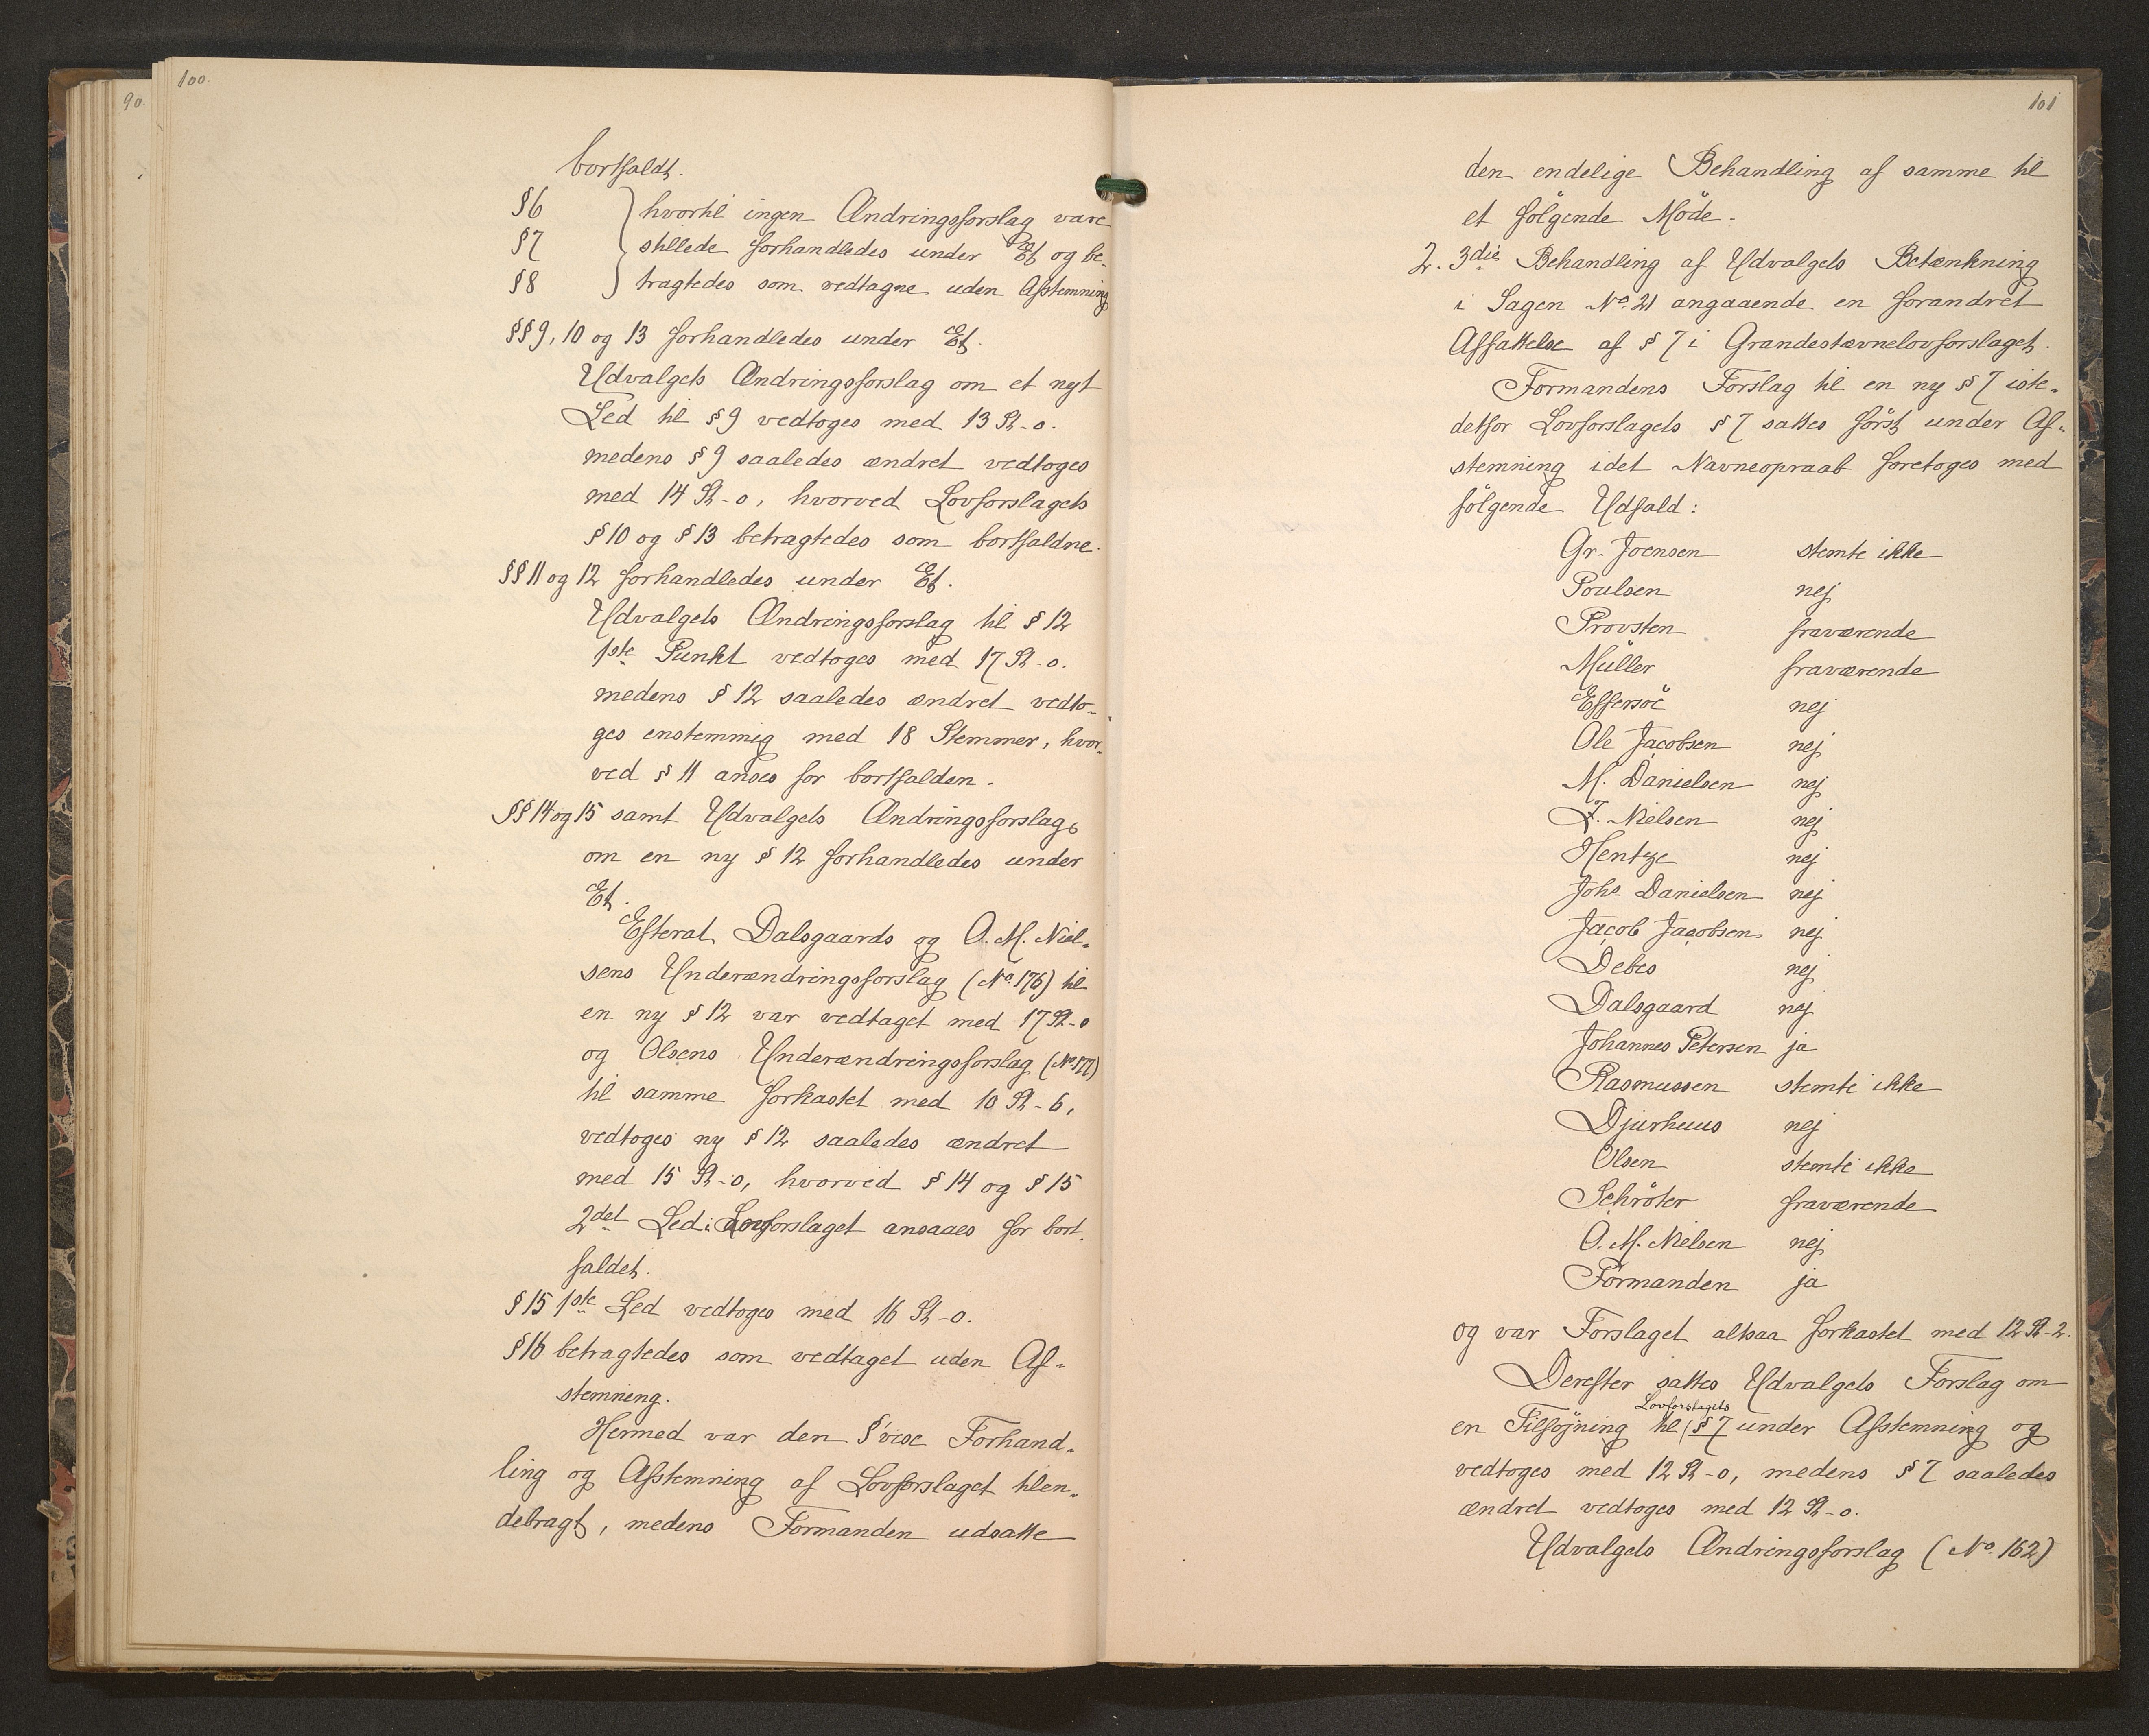 90.
100.
bortfaldt.
§6 } hvortil ingen Ændringsforslag vare
§7 } stillede forhandledes under Et og be-
§8 } tragtedes som vedtagne uden Afstemning
§§9, 10 og 13 forhandledes under Et.
Udvalgets Ændringsforslag om et nyt
Led til §9 vedtoges med 13 St-0.
medens §9 saaledes ændret vedtoges
med 14 St-0, hvorved Lovforslagets
§10 og §13 betragtedes som bortfaldne.
§§11 og 12 forhandledes under Et.
Udvalgets Ændringsforslag til §12
1ste Punkt vedtoges med 17 St-0.
medens §12 saaledes ændret vedto-
ges enstemmig med 18 Stemmer, hvor-
ved §11 anses for bortfalden.
§§14 og 15 samt Udvalgets Ændringsforslag
om en ny §12 forhandledes under
Et.
Efterat Dalsgaards og O. M. Niel-
sens Underændringsforslag (No. 176) til
en ny §12 var vedtaget med 17 St-0
og Olsens Underændringsforslag (No. 177)
til samme forkastet med 10 St-6,
vedtoges ny §12 saaledes ændret
med 15 St-0, hvorved §14 og §15
2det Led i Lovforslaget ansaaes for bort-
faldet.
§15 1ste Led vedtoges med 16 St-0.
§16 betragtedes som vedtaget uden Af-
stemning.
Hermed var den §'vise Forhand-
ling og Afstemning af Lovforslaget tilen-
debragt, medens Formanden udsatte
101
den endelige Behandling af samme til
et følgende Møde.
2. 3die Behandling af Udvalgets Betænkning
i Sagen No. 21 angaaende en forandret
Affattelse af §7 i Grandestævnelovforslaget.
Formandens Forslag til en ny §7 iste-
detfor Lovforslagets §7 sattes först under Af-
stemning idet Navneopraab foretoges med
fölgende Udfald:
Gr. Joensen stemte ikke
Poulsen nej
Provsten fraværende
Müller fraværende
Effersöe nej
Ole Jacobsen nej
M. Danielsen nej
J. Nielsen nej
Hentze nej
Johs Danielsen nej
Jacob Jacobsen nej
Debes nej
Dalsgaard nej
Johannes Petersen ja
Rasmussen stemte ikke
Djurhuus nej
Olsen stemte ikke
Schröter fraværende
O. M. Nielsen nej
Formanden ja
og var Forslaget altsaa forkastet med 12 St-2.
Derefter sattes Udvalgets Forslag om
Lovforslagets
en Tilföjning til §7 under Afstemning og
vedtoges med 12 St-0, medens §7 saaledes
ændret vedtoges med 12 St-0.
Udvalgets Ændringsforslag (No. 162)